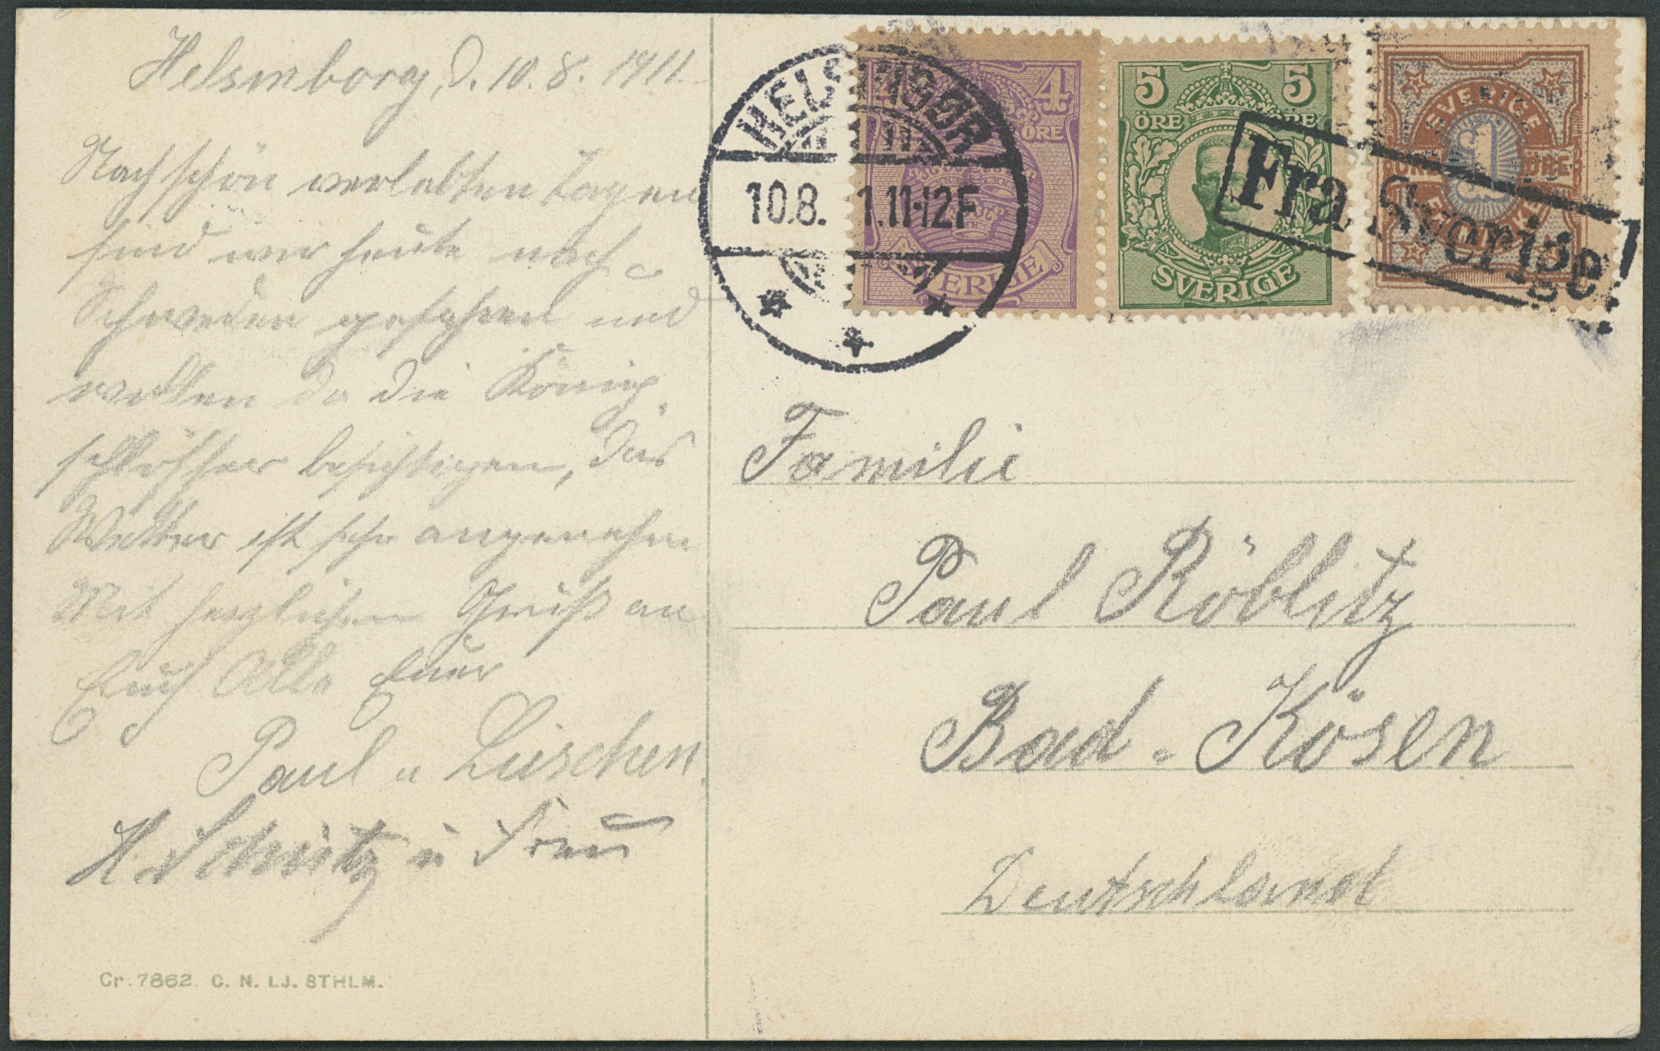 Helsinborg, d. 10.8.1911.
Nach schön verlebten Tagen
sind wir heute nach
Schweden gefahren und
wollen da die König-
schlösser besichtigen, das
Wetter ist sehr angenehm
Mit herzlichem Gruß an
Euch Alle Euer
Paul u Lieschen.
H. Schütz u Frau
Cr. 7862. C. N. LJ. STHLM.
HELSINGØR
10.8. 1.11-12F
4
ÖRE
SVERIGE
5 5
ÖRE ÖRE
SVERIGE
SVERIGE
1
Fra Sverige.
Familie
Paul Röblitz
Bad-Kösen
Deutschland